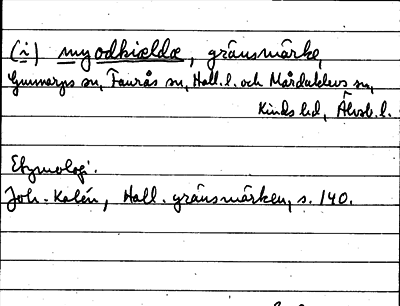 (i) myodkiældæ, gränsmärke,
Gunnarps sn, Faurås sn, Hall. l. och Mårdaklevs sn,
Kinds hd, Älvsb. l.
Etymologi.
Joh. Kalén, Hall. gränsmärken, s. 140.